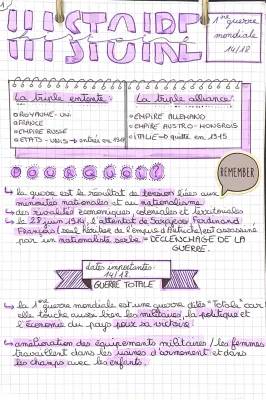 1
HISTOIRE
histoire
1ère guerre
mondiale
14/18
La triple entente:
La triple alliance:
ROYAUME-UNI
FRANCE
EMPIRE RUSSE
ETATS-UNIS → entrée en
EMPIRE ALLEMAND
EMPIRE AUSTRO-HONGROIS
ITALIE → quitte en 1915
POURQUOI?
REMEMBER
la guerre est le résultat de tension liées aux
minorités nationales et au nationalisme
des rivalités économiques, coloniales et térritoriales
le 28 juin 1914, l'attentat de Sarajevo Ferdinand
François (seul héritier de l'empire d'Autriche) est assassiné
par un nationaliste serbe = DÉCLENCHAGE DE LA
GUERRE.
dates importantes:
14/18
GUERRE TOTALE
la 1ère guerre mondiale est une guerre dite "Totale" car
elle touche aussi bien les militaires, la politique et
l'économie du pays pour sa victoire.
amélioration des équipements militaires / les femmes
travaillent dans les usines d'armement et dans
les champs avec les enfants.